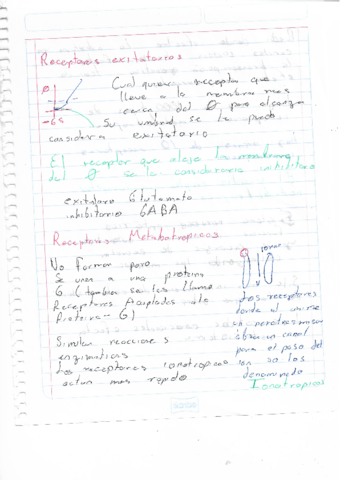 Receptores exitatorios
0
-65
Cualquier receptor que
lleve a la membrana mas
cerca del 0 para alcanza
su umbral se le puede
considera exitatorio
El receptor que aleje la membrana
del 0 se le considerara inhibitorio
exitatorio Glutamato
inhibitorio GABA
Receptores Metabotropicos
No forman poro
Se unen a una proteina
G (tambien se les llama
Receptores Acoplados ala
Proteina - G)
Simulan reacciones
enzimaticas
Los receptores ionotropicos
actuan mas rapido
iones
Los receptores
donde al unirse
un neurotransmisor
abra un canal
para el paso del
ion se los
denominado
Ionotropicos